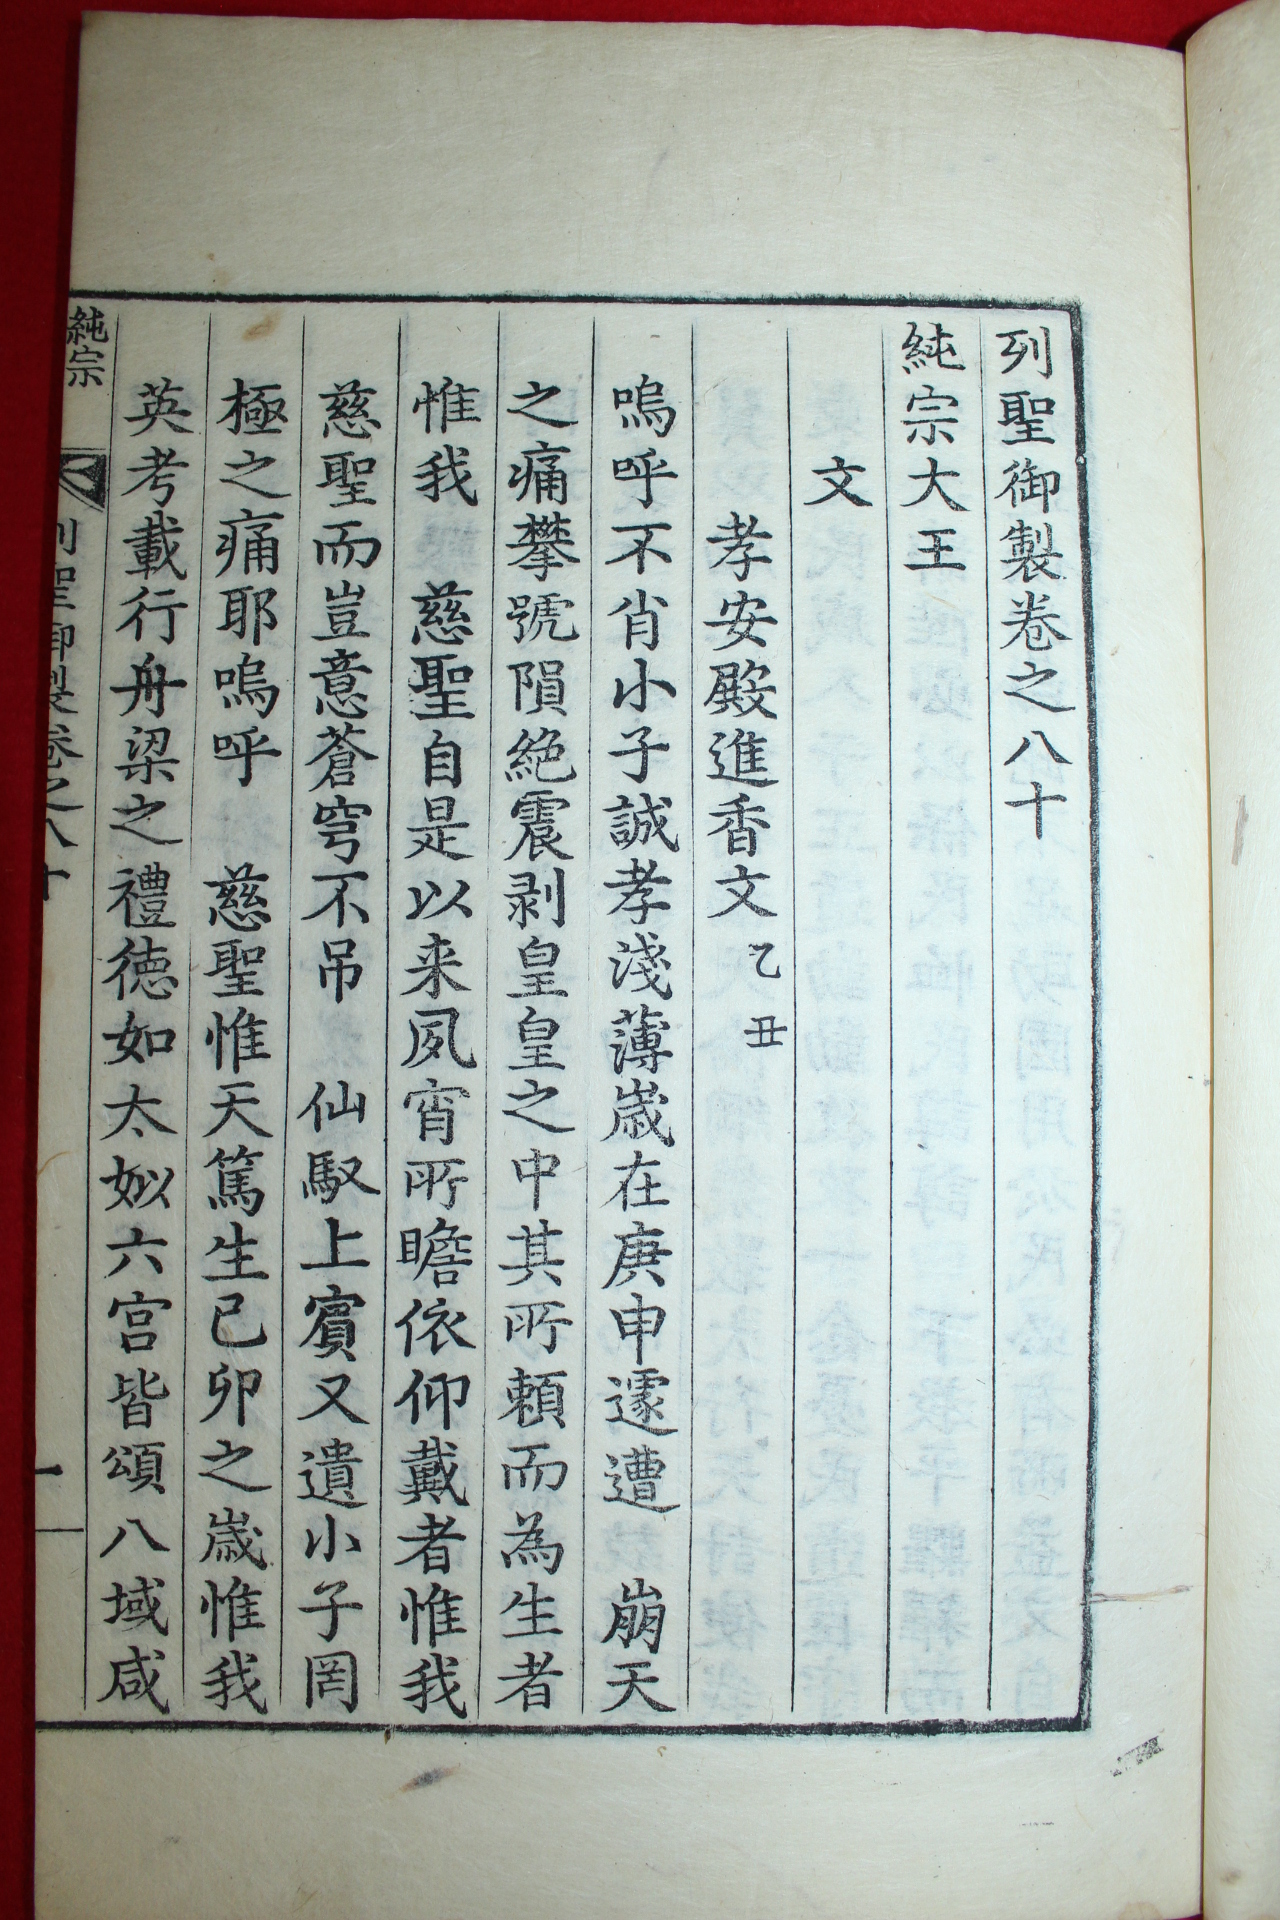 列聖御製卷之八十
純宗大王
文
孝安殿進香文 乙丑
嗚呼不肖小子誠孝淺薄歲在庚申遽遭 崩天
之痛攀號隕絶震剥皇皇之中其所頼而為生者
惟我 慈聖自是以来夙宵所瞻依仰戴者惟我
慈聖而豈意蒼穹不吊 仙馭上賓又遺小子罔
極之痛耶嗚呼 慈聖惟天篤生己卯之歲惟我
英考載行舟梁之禮德如太姒六宮皆頌八域咸
純宗 列聖御製卷之八十 一